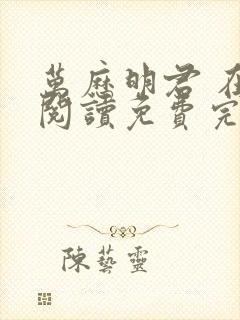 萬麻明君 在
閱讀免費完
陳藝靈